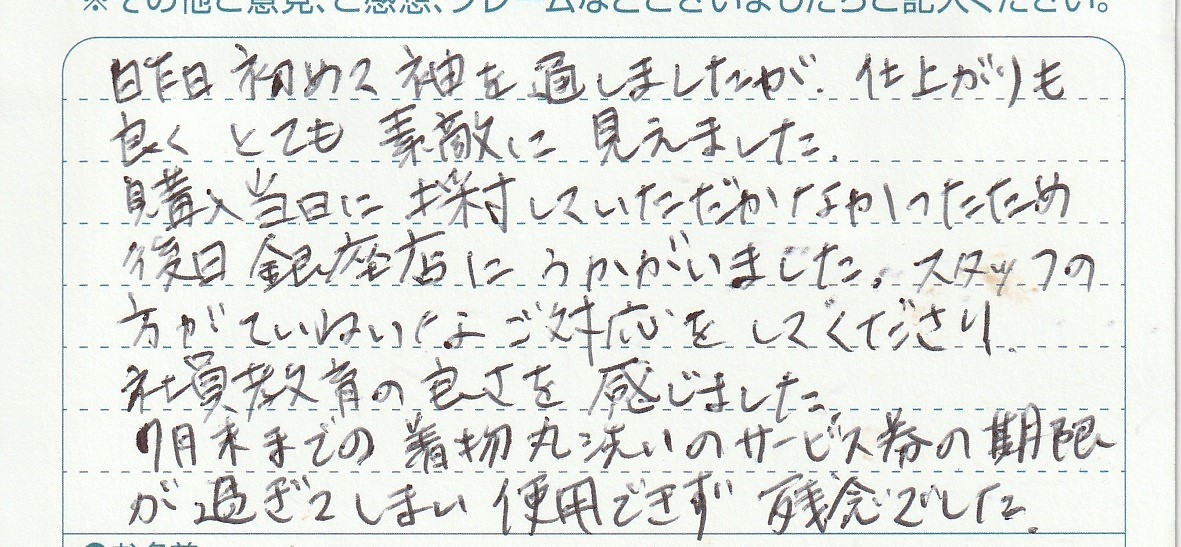 ※その他ご意見、ご感想、クレームなどございましたらご記入ください。
昨日 初めて 袖を 通しましたが、仕上がりも
良く とても 素敵に 見えました。
購入当日に 採寸していただだかなかったため
後日 銀座店に うかがいました。スタッフの
方がていねいなご対応を してくださり、
社員教育の良さを 感じました。
7月末までの 着物丸洗いのサービス券の期限
が過ぎてしまい 使用できず 残念でした。